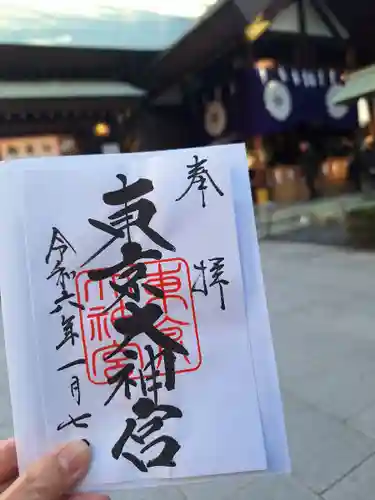 奉拝
東京大神宮
令和六年一月七日
東京大神宮